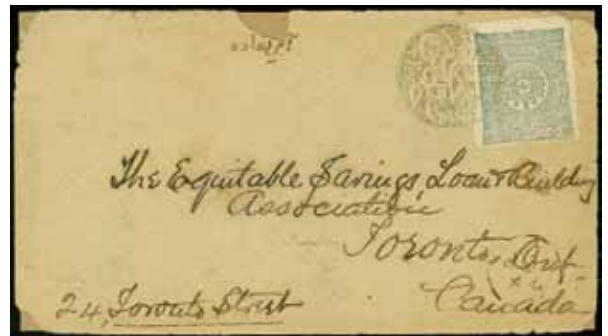 آمريقاده
The Equitable Savings Loan & Building
Association
Toronto, Ont.
Canada
24, Toronto Street